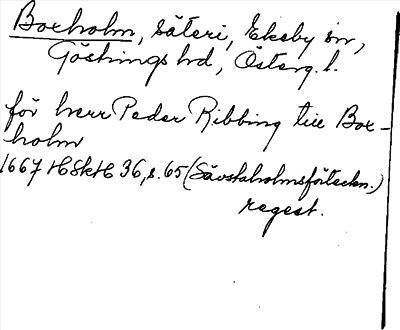 Boxholm, säteri, Eksby sn,
Göstrings hd, Österg. l.
för herr Peder Ribbing till Box-
holm
1667 HSkH 36, s. 65 (Sävstaholmsförteckn.)
regest.